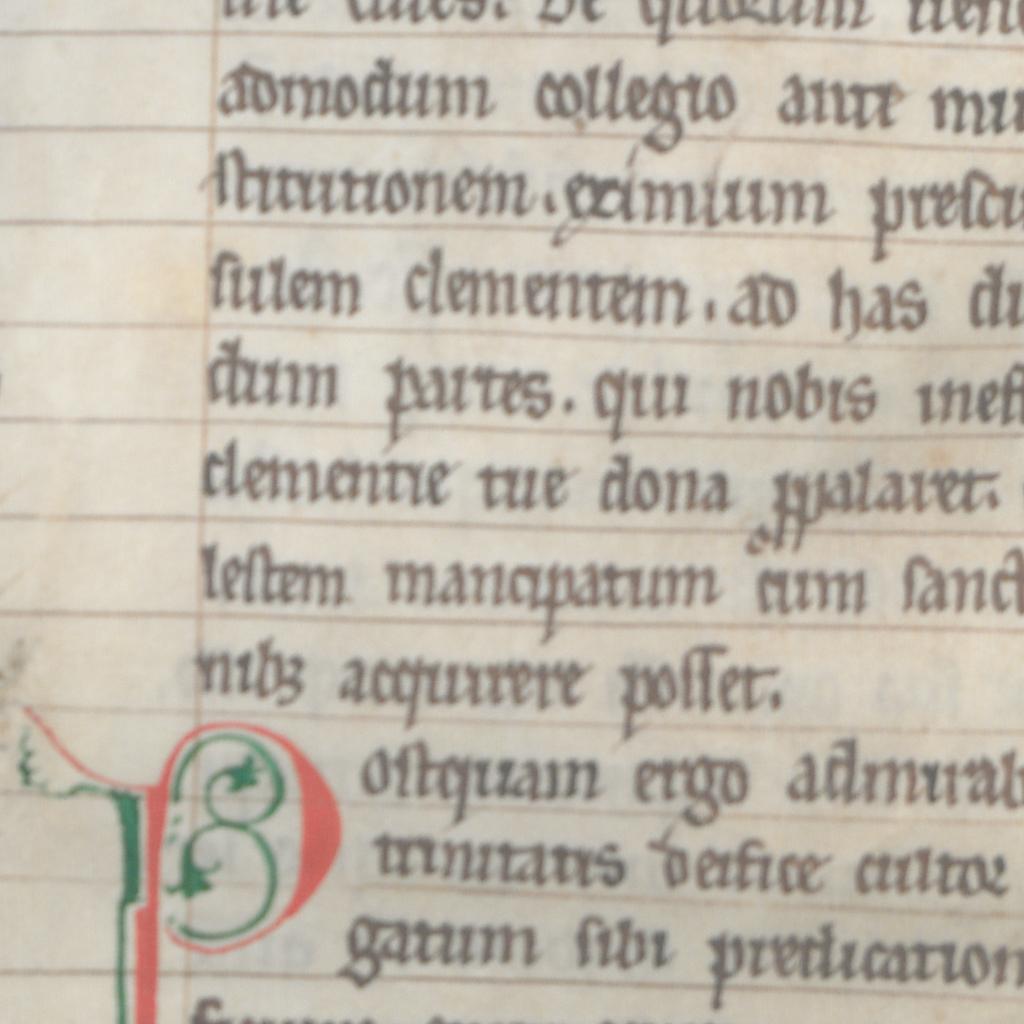 admodum collegio ante mu
stitutionem. eximium prescu
sulem clementem. ad has du
dum partes. qui nobis inef
clementie tue dona ꝓpalaret.
lestem mancipatum cum sanct
nibꝫ acquirere posset.
Postquam ergo admirab
trinitatis deifice cultor
gatum sibi predication